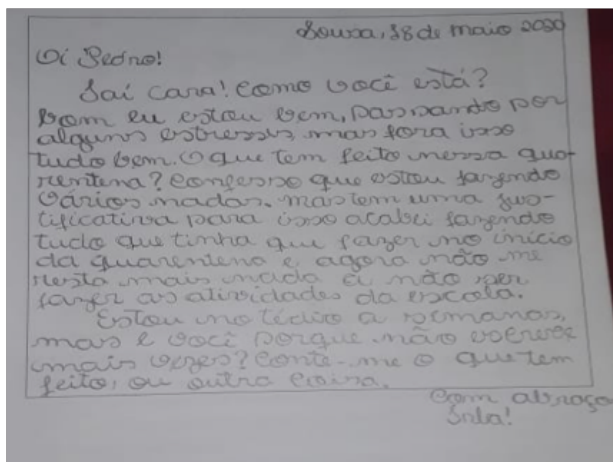 Sousa, 18 de maio 2020
Oi Pedro!
Saí cara! Como você está?
Bom eu estou bem, passando por
alguns estressis mas fora isso
tudo bem. O que tem feito nessa qua-
rentena? Confesso que estou fazendo
vários nadas, mas tem uma jus-
tificativa para isso acabei fazendo
tudo que tinha que fazer no início
da quarentena e agora não me
resta mais nada a não ser
fazer as atividades da escola.
Estou no tédio a semanas,
mas e você porque não escreve
mais vezes? Conte-me o que tem
feito, ou outra coisa.
Com abraço